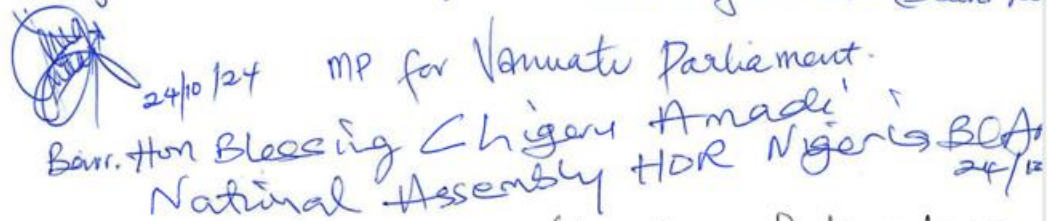 24/10/24 MP for Vanuatu Parliament.
Barr. Hon Blessing Chigeru Amadi
National Assembly HOR Nigeria
24/